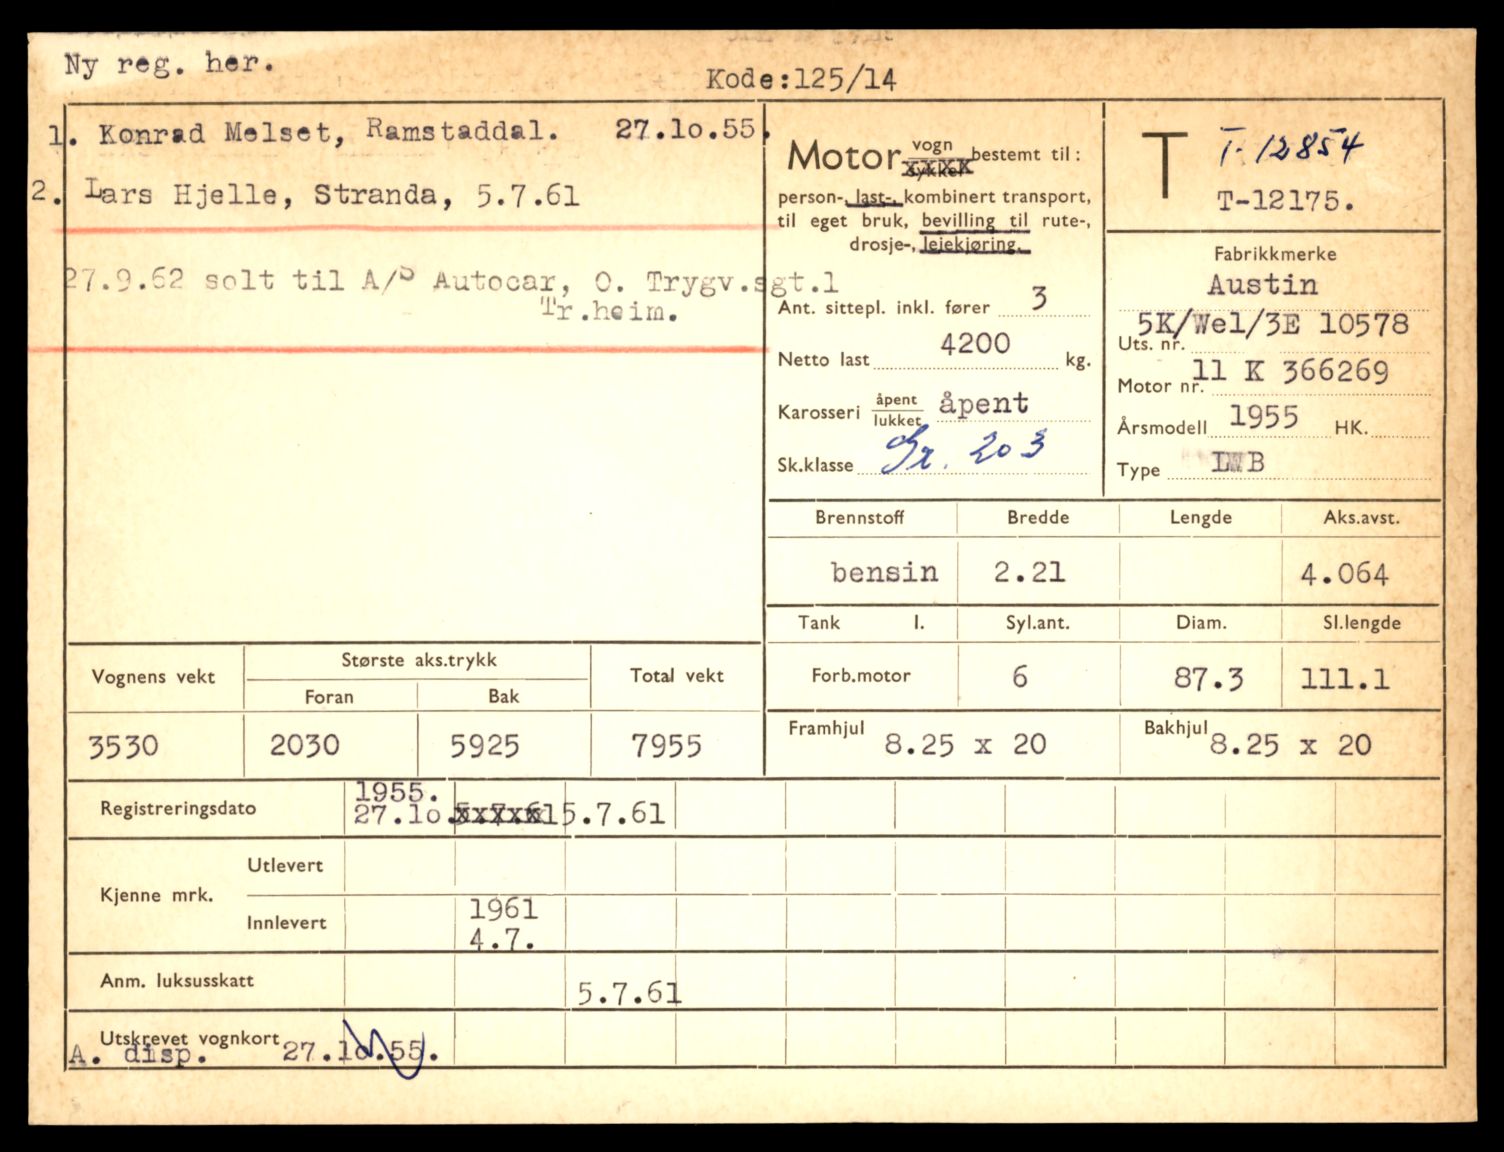 Ny reg. her.
Kode:125/14
1. Konrad Melset, Ramstaddal. 27.10.55.
2. Lars Hjelle, Stranda, 5.7.61
27.9.62 solt til A/S Autocar, O. Trygv.sgt.1
Tr.heim.
Motor vogn bestemt til:
person-, last-, kombinert transport,
til eget bruk, bevilling til rute-,
drosje-, leiekjøring.
Ant. sittepl. inkl. fører 3
Netto last 4200 kg.
Karosseri åpent
lukket åpent
Sk.klasse 203
T T-12854
T-12175.
Fabrikkmerke
Austin
5K/Wel/3E 10578
Uts. nr.
Motor nr. 11 K 366269
Årsmodell 1955 HK.
Type LWB
Brennstoff Bredde Lengde Aks.avst.
bensin 2.21 4.064
Tank l. Syl.ant. Diam. Sl.lengde
Forb.motor 6 87.3 111.1
Framhjul 8.25 x 20 Bakhjul 8.25 x 20
Vognens vekt Største aks.trykk Total vekt
Foran Bak
3530 2030 5925 7955
1955.
Registreringsdato 27.10. 5.7.61
Kjenne mrk. Utlevert
Innlevert 1961
4.7.
Anm. luksusskatt 5.7.61
Utskrevet vognkort
A. disp. 27.10.55.